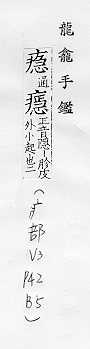 龍龕手鑑
通
正音隱丨胗皮
外小起也二
(疒部
V3
P42
B5)